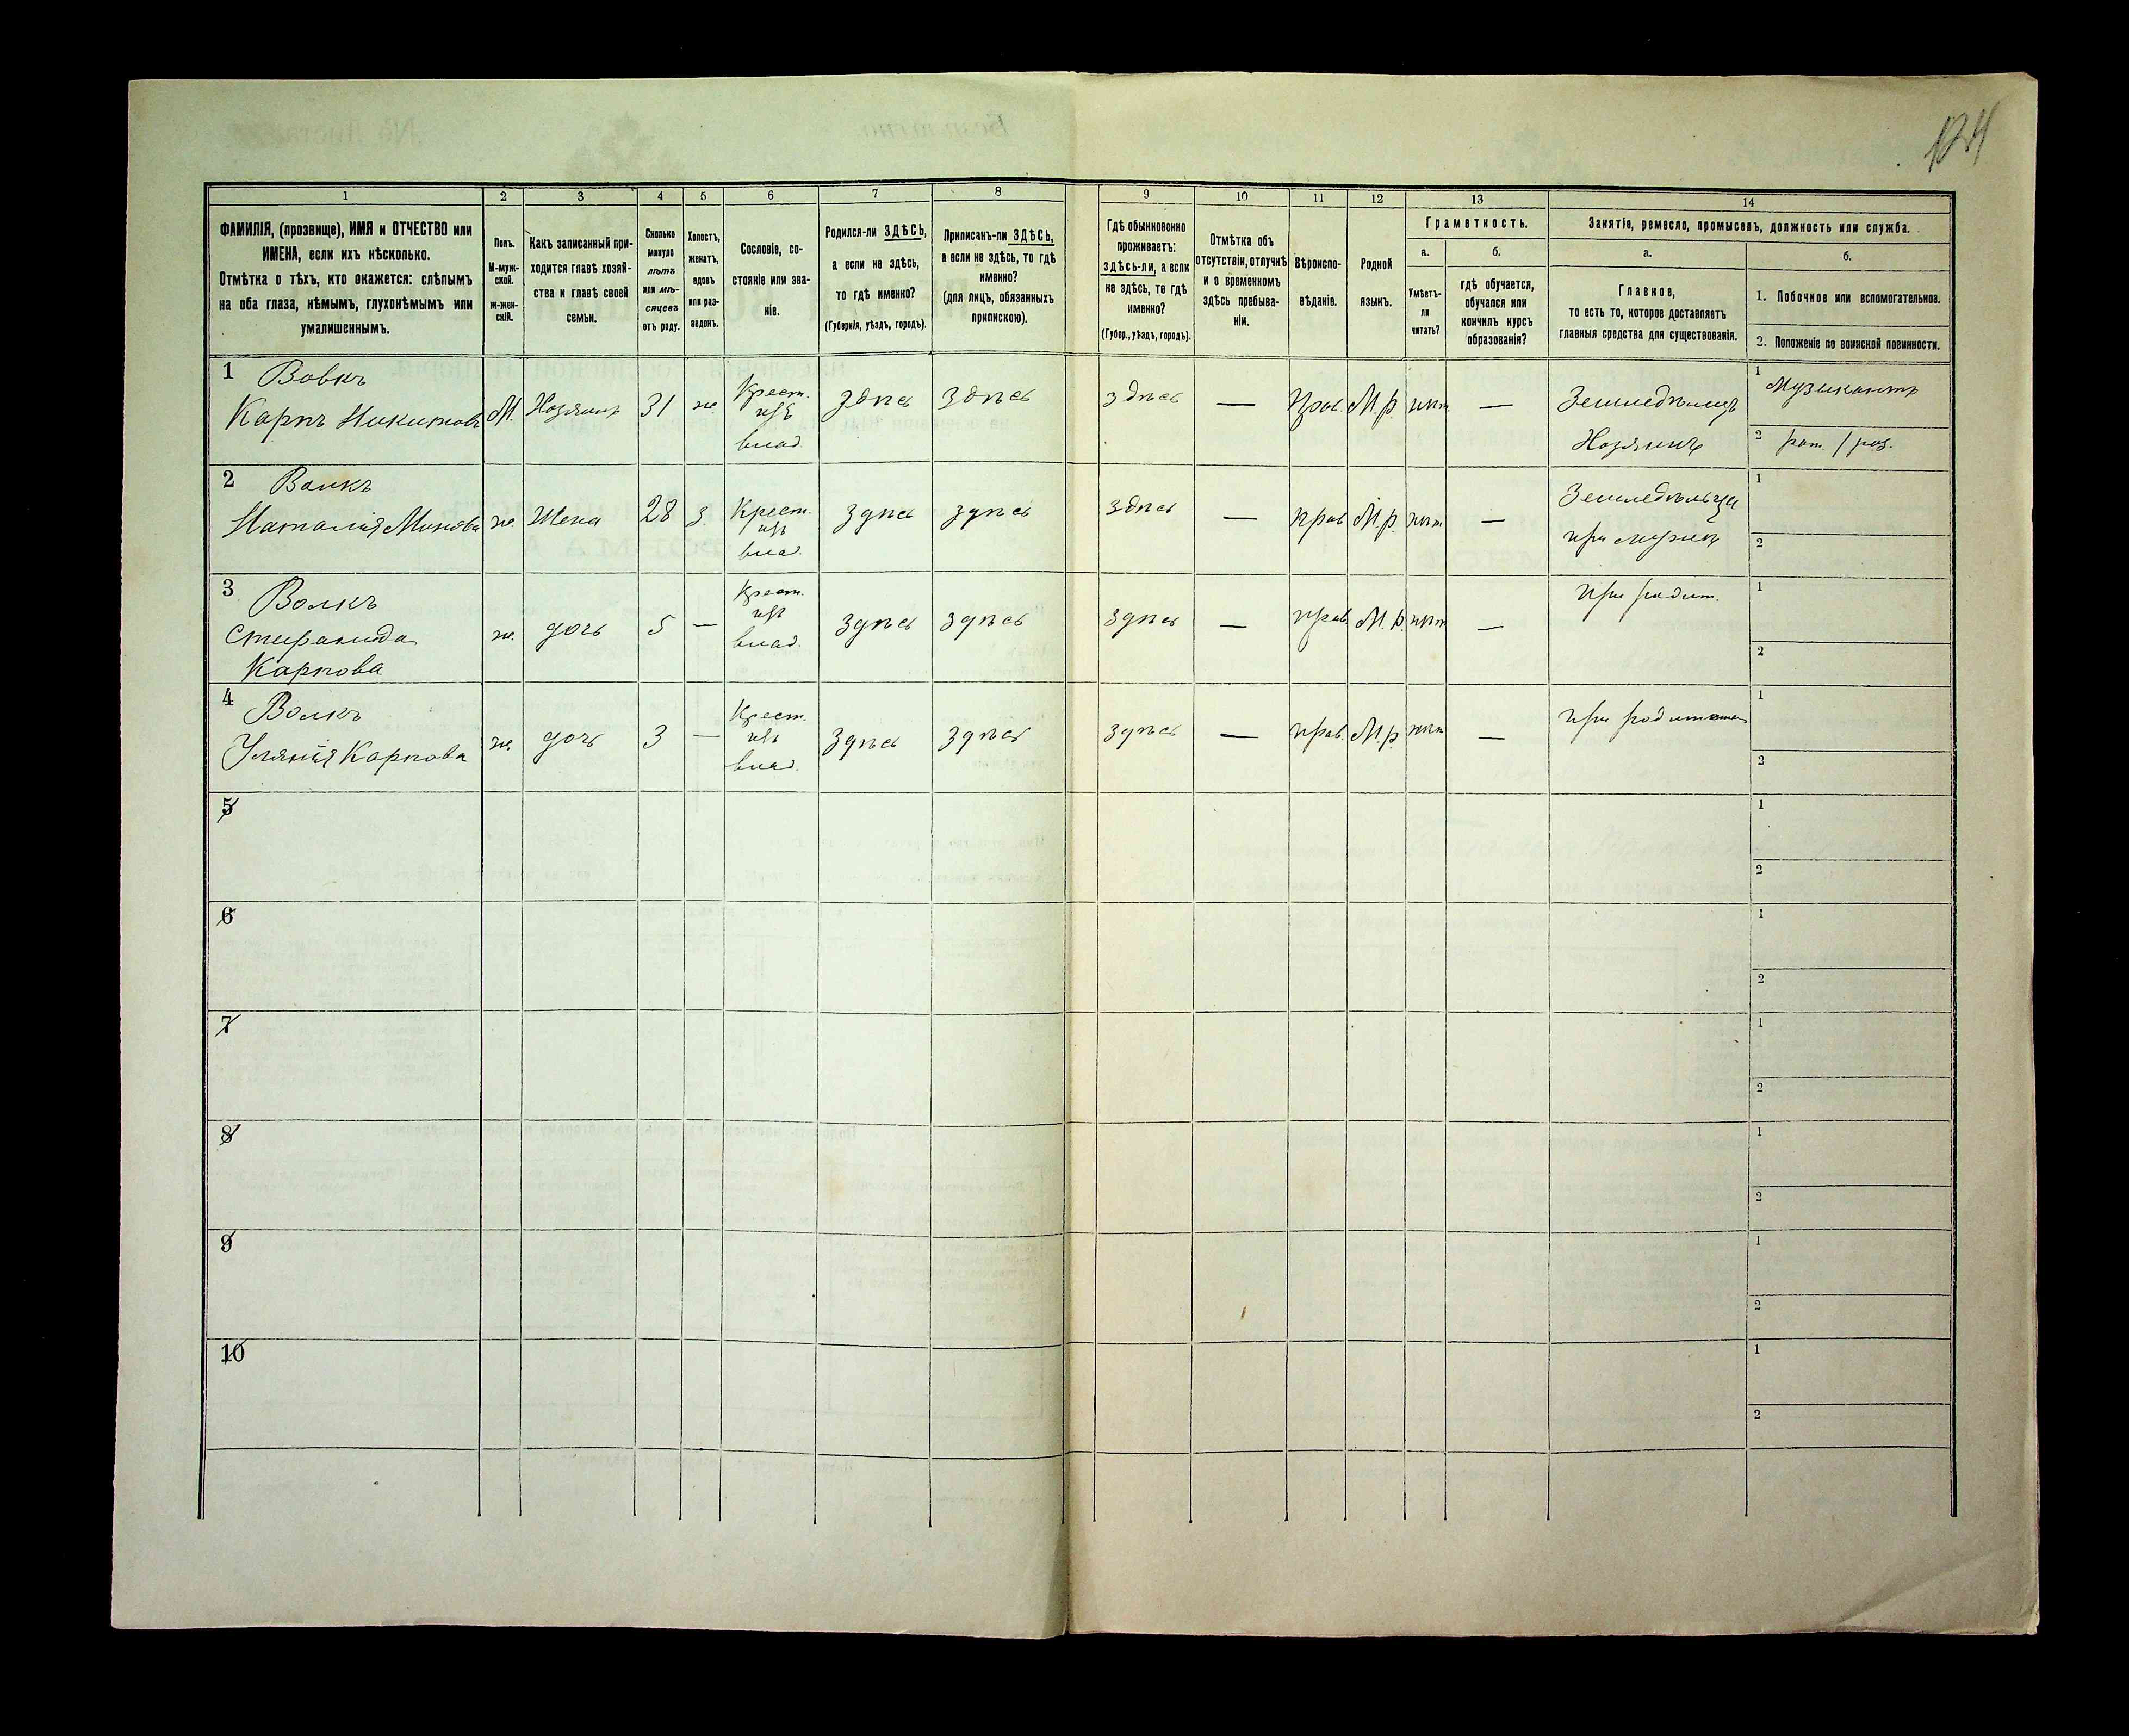 124
1 2 3 4 5 6 7 8 9 10 11 12 13 14
ФАМИЛІЯ, (прозвище), ИМЯ и ОТЧЕСТВО или
ИМЕНА, если ихъ нѣсколько.
Отмѣтка о тѣхъ, кто окажется: слѣпымъ
на оба глаза, нѣмымъ, глухонѣмымъ или
умалишеннымъ.
Полъ.
М-муж-
ской.
ж-жен-
скій.
Какъ записанный при-
ходится главѣ хозяй-
ства и главѣ своей
семьи.
Сколько
минуло
лѣтъ
или мѣ-
сяцевъ
отъ роду.
Холостъ,
женатъ,
вдовъ
или раз-
веденъ.
Сословіе, со-
стояніе или зва-
ніе.
Родился-ли ЗДѢСЬ,
а если не здѣсь,
то гдѣ именно?
(Губернія, уѣздъ, городъ).
Приписанъ-ли ЗДѢСЬ,
а если не здѣсь, то гдѣ
именно?
(для лицъ, обязанныхъ
припискою).
Гдѣ обыкновенно
проживаетъ:
здѣсь-ли, а если
не здѣсь, то гдѣ
именно?
(Губер., уѣздъ, городъ).
Отмѣтка объ
отсутствіи, отлучкѣ
и о временномъ
здѣсь пребыва-
ніи.
Вѣроиспо-
вѣданіе.
Родной
языкъ.
Грамотность.
а.
Умѣетъ-
ли
читать?
б.
гдѣ обучается,
обучался или
кончилъ курсъ
образованія?
Занятіе, ремесло, промыселъ, должность или служба.
а.
Главное,
то есть то, которое доставляетъ
главныя средства для существованія.
б.
1. Побочное или вспомогательное.
2. Положеніе по воинской повинности.
1 Вовкъ
Карпъ Никитовъ М. Хозяинъ 31 ж. Крест. изъ влад. здѣсь здѣсь здѣсь — Прав. М.р. нѣт. — Земледѣлецъ
Хозяинъ
1 Музикантъ
2 рат. / раз.
2 Волкъ
Наталія Минова ж. Жена 28 з. Крест. изъ влад. здѣсь здѣсь здѣсь — прав М.р. нѣт — Земледѣльца
при мужѣ
1
2
3 Волкъ
Стефанида
Карпова ж. дочь 5 — Крест. изъ влад. здѣсь здѣсь здѣсь — прав. М.р. нѣт — при родит.
1
2
4 Волкъ
Уляния Карпова ж. дочь 3 — Крест. изъ влад. здѣсь здѣсь здѣсь — прав. М.р. нѣт —
1
2
5
1
2
6
1
2
7
1
2
8
1
2
9
1
2
10
1
2